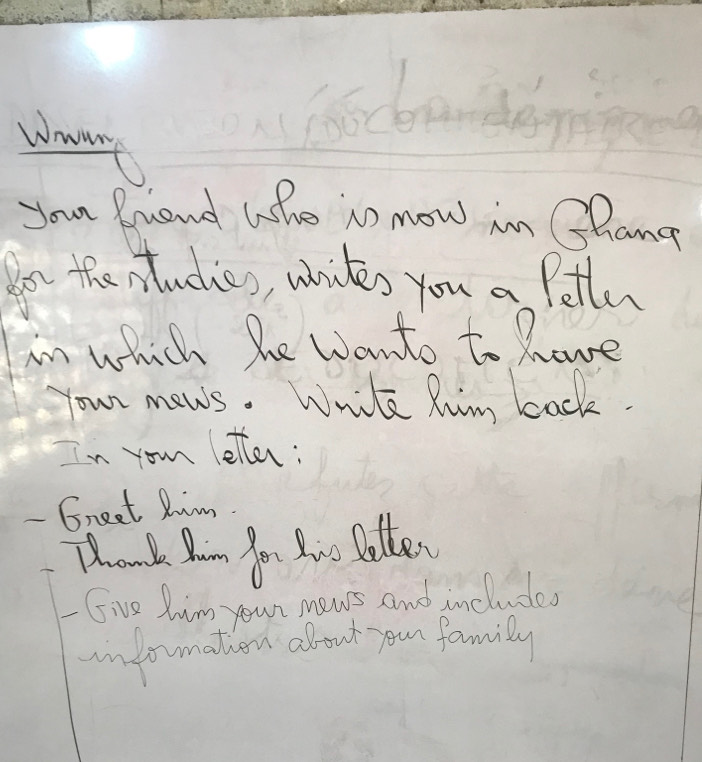 Your friend who is now in Ghana
for the studies, writes you a letter
in which he wants to have
your news. Write him back.
In your letter:
- Greet him.
- Thank him for his letter
- Give him your news and includes
information about your family